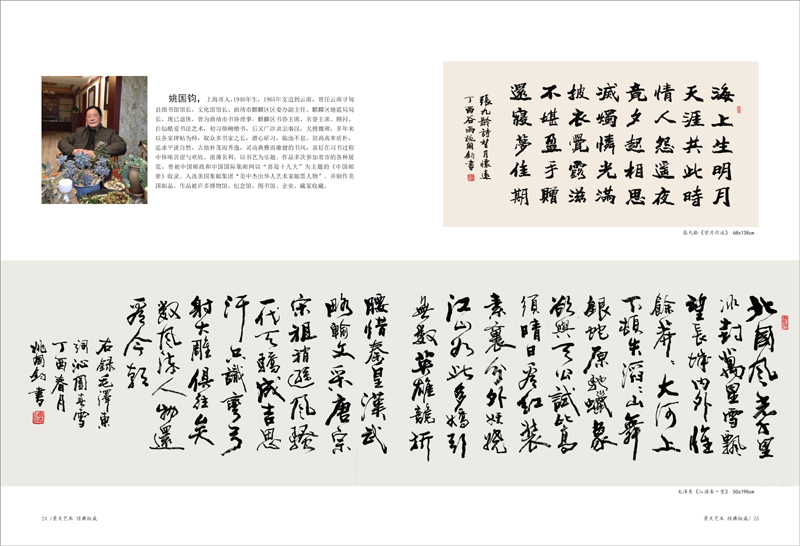 姚国钧，上海市人，1946年生，1965年支边到云南，曾任云南寻甸
县图书馆馆长、文化馆馆长、曲靖市麒麟区区委办副主任、麒麟区地震局局
长，现已退休。曾为曲靖市书协理事、麒麟区书协主席、名誉主席、顾问。
自幼酷爱书法艺术，初习颜柳楷书，后又广涉及宗秦汉，尤擅魏碑，多年来
以各家碑帖为师，取众多书家之长，潜心研习，临池不怠。崇尚真率质朴，
追求平淡自然，古拙朴茂而秀逸，灵动典雅而雄健的书风，喜好在习书过程
中体味苦涩与欢欣，淡薄名利，以书艺为乐趣。作品多次参加省市的各种展
览。曾被中国邮政和中国国际集邮网以“喜迎十九大”为主题的《中国邮
册》收录。入选美国集邮集团“美中杰出华人艺术家邮票人物”，并制作美
国邮品。作品被许多博物馆、纪念馆、图书馆、企业、藏家收藏。
海上生明月
天涯共此時
情人怨遥夜
竟夕起相思
滅燭憐光滿
披衣覺露滋
不堪盈手贈
還寝夢佳期
張九齡詩望月懷遠
丁酉谷雨姚國鈞書
张九龄《望月怀远》 68x138cm
北國風光千里
冰封萬里雪飄
望長城内外惟
餘莽〻大河上
下頓失滔〻山舞
銀蛇原馳蠟象
欲與天公試比高
須晴日看红装
素裹分外妖娆
江山如此多嬌引
無數英雄競折
腰惜秦皇漢武
略輸文采唐宗
宋祖稍遜風騷
一代天驕成吉思
汗只識彎弓
射大雕俱往矣
数風流人物還
看今朝
右録毛澤東
詞沁園春雪
丁酉春月
姚國鈞書
毛泽东《沁园春·雪》 50x198cm
24 /景天艺术 经典权威
景天艺术 经典权威/ 25